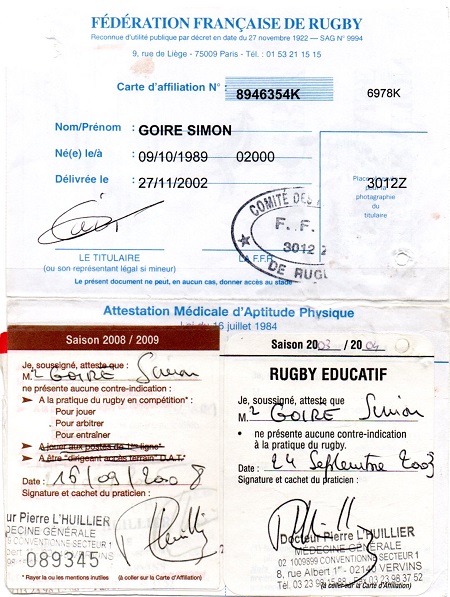 FÉDÉRATION FRANÇAISE DE RUGBY
Reconnue d'utilité publique par décret en date du 27 novembre 1922 — SAG N° 9994
9, rue de Liège - 75009 Paris - Tél. : 01 53 21 15 15
Carte d'affiliation N° : 8946354K 6978K
Nom/Prénom : GOIRE SIMON
Né(e) le/à : 09/10/1989 02000
Délivrée le : 27/11/2002 3012Z
photographie du
titulaire
COMITÉ DES
F. F.
3012
DE RUGBY
LE TITULAIRE
(ou son représentant légal si mineur)
LA F.F.R.
Le présent document ne peut, en aucun cas, donner accès au stade
Attestation Médicale d'Aptitude Physique
Loi du 16 juillet 1984
Saison 2008 / 2009
Je, soussigné, atteste que :
M. GOIRE Simon
ne présente aucune contre-indication :
➤ A la pratique du rugby en compétition* :
Pour jouer
Pour arbitrer
Pour entraîner
➤ A jouer aux postes de 1re ligne*
➤ A être "dirigeant accès terrain" D.A.T.*
Date : 16/09/2008
Signature et cachet du praticien :
ur Pierre L'HUILLIER
DECINE GÉNÉRALE
CONVENTIONNÉ SECTEUR 1
089345
* Payer la ou les mentions inutiles (à coller sur la Carte d'Affiliation)
Saison 2003 / 2004
RUGBY EDUCATIF
Je, soussigné, atteste que :
M. GOIRE Simon
• ne présente aucune contre-indication
à la pratique du rugby.
Date : 24 Septembre 2003
Signature et cachet du praticien :
Docteur Pierre L'HUILLIER
MEDECINE GÉNÉRALE
02 1009899 CONVENTIONNÉ SECTEUR 1
8, rue Albert 1er - 02140 VERVINS
Tél. 03 23 98 15 88 Fax 03 23 98 37 52
(à coller sur la Carte d'Affiliation)